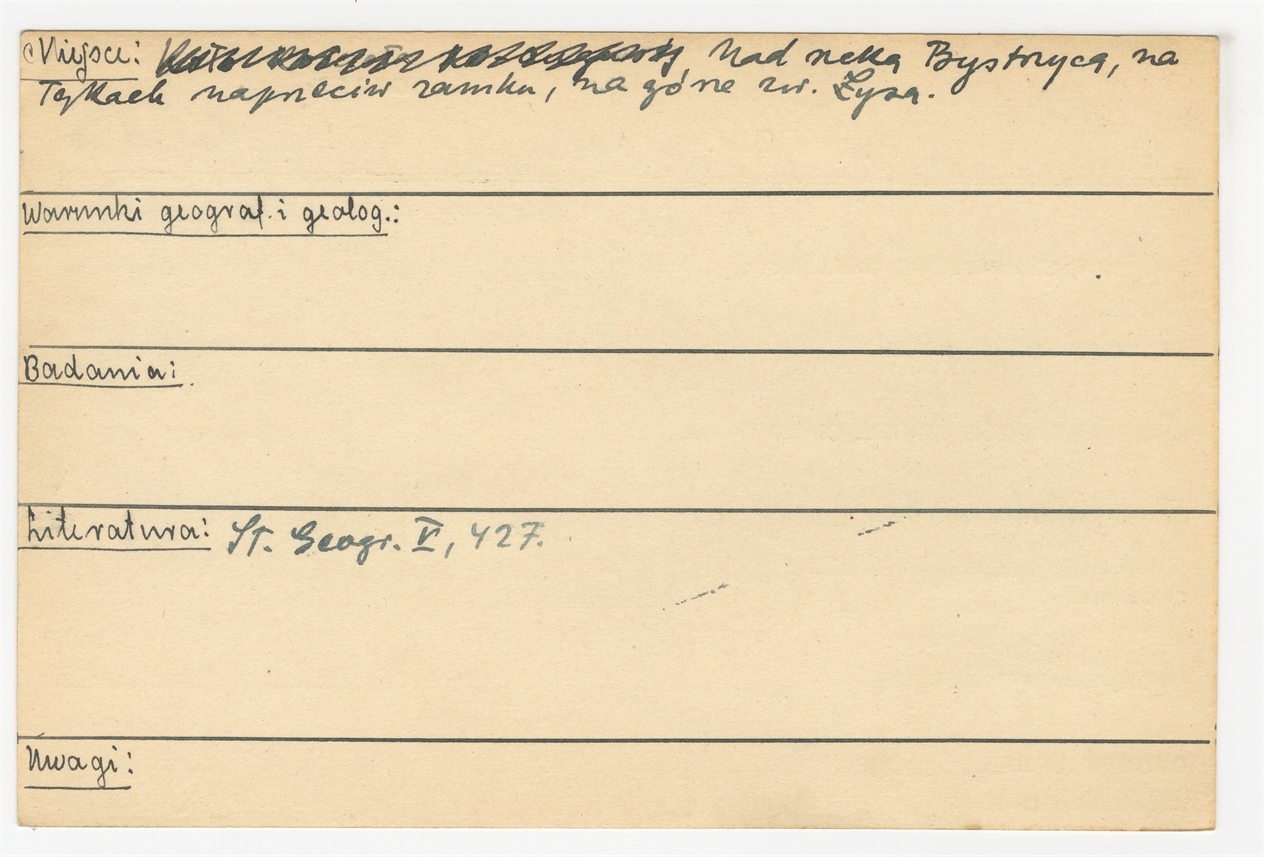 Miejsce: Nad rzeką Bystrzycą, na
łąkach naprzeciw zamku, na górze zw. Łysą.
Warunki geograf. i geolog.:
Badania:
Literatura: Sł. Geogr. V, 427.
Uwagi: